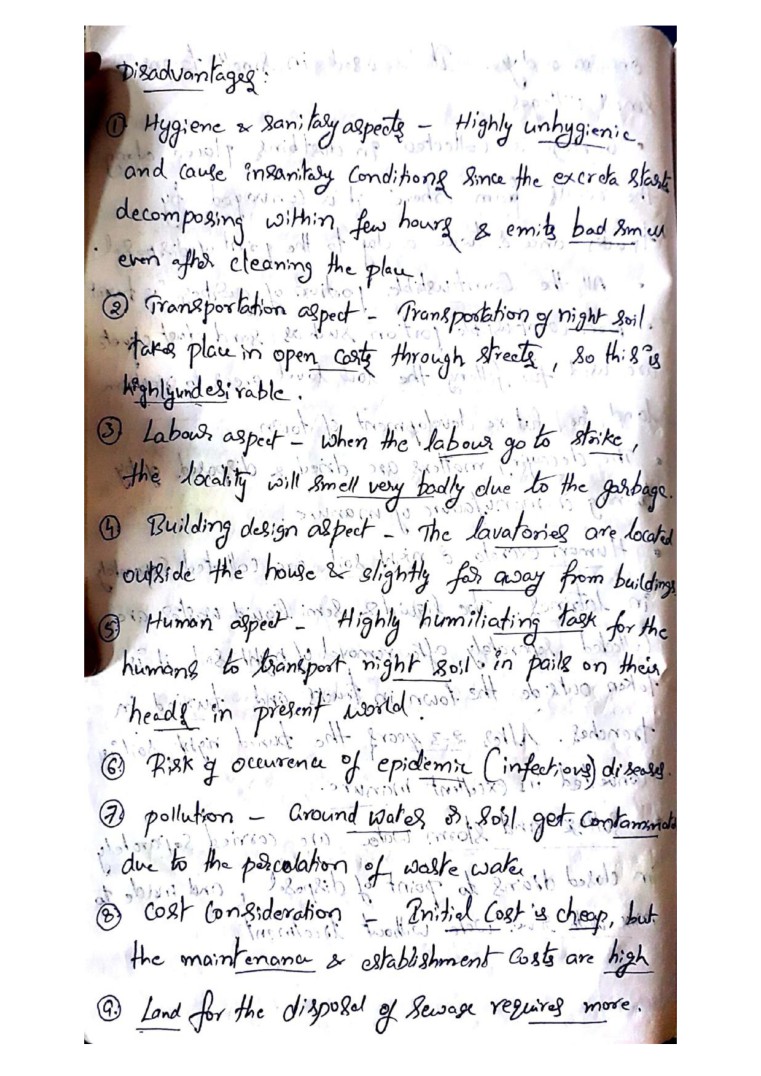 Disadvantages:
① Hygiene & sanitary aspects - Highly unhygienic
and cause insanitary conditions since the excreta starts
decomposing within few hours & emits bad smell
even after cleaning the place.
② Transportation aspect - Transportation of night soil
takes place in open carts through streets, so this is
highly undesirable.
③ Labour aspect - when the labour go to strike,
the locality will smell very badly due to the garbage.
④ Building design aspect - The lavatories are located
outside the house & slightly far away from buildings
⑤ Human aspect - Highly humiliating task for the
humans to transport night soil in pails on their
heads in present world.
⑥ Risk of occurence of epidemic (infectious) diseases.
⑦ pollution - Ground water & soil get contaminated
due to the percolation of waste water
⑧ Cost Consideration - Initial cost is cheap, but
the maintenance & establishment costs are high
⑨ Land for the disposal of sewage requires more.